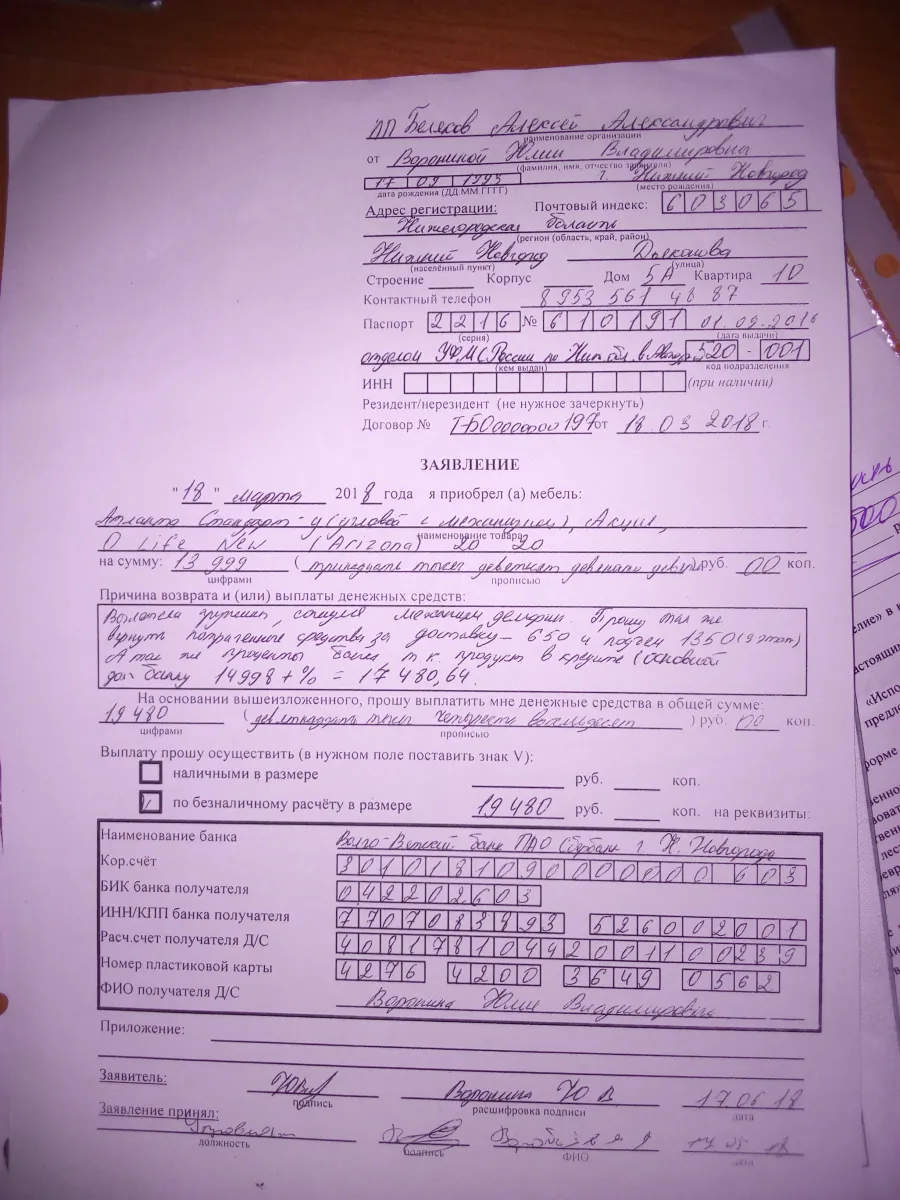 ИП Беляков Алексей Александрович
наименование организации
от Ворониной Юлии Владимировны
(фамилия, имя, отчество заявителя)
17 09 1995 г. Нижний Новгород
дата рождения (ДД.ММ.ГГГГ) (место рождения)
Адрес регистрации: Почтовый индекс: 603065
Нижегородская область
(регион (область, край, район)
Нижний Новгород Дьяконова
(населённый пункт) (улица)
Строение Корпус Дом 5А Квартира 10
Контактный телефон 8 953 561 48 87
Паспорт 2216 № 610191 01.02.2016
(серия) (дата выдачи)
отделом УФМС России по Ниж. обл. в 520 - 001
(кем выдан) код подразделения
ИНН (при наличии)
Резидент/нерезидент (не нужное зачеркнуть)
Договор № от 18.03.2018 г.
ЗАЯВЛЕНИЕ
"18" марта 2018 года я приобрел (а) мебель:
Атланта Стандарт-У (угловой с механизмом), Акция,
наименование товара
O Life New (Arizona) 20 20
на сумму: 13 999 (тринадцать тысяч девятьсот девяносто девять) руб. 00 коп.
цифрами прописью
Причина возврата и (или) выплаты денежных средств:
пружины, механизм Прошу так же
вернуть потраченные средства за доставку – 650 и подъем 1350 (9 этаж)
А так же проценты банка, т.к. продукт в кредите (основной
долг банку 14998 + % = 17 480,64.
На основании вышеизложенного, прошу выплатить мне денежные средства в общей сумме:
19 480 (девятнадцать тысяч четыреста восемьдесят) руб. 00 коп.
цифрами прописью
Выплату прошу осуществить (в нужном поле поставить знак V):
наличными в размере руб. коп.
V по безналичному расчёту в размере 19 480 руб. коп. на реквизиты:
Наименование банка Волго-Вятский банк ПАО Сбербанк г. Н. Новгорода
Кор.счёт 30101810900000000603
БИК банка получателя 042202603
ИНН/КПП банка получателя 7707083893 526002001
Расч.счет получателя Д/С 40817810442001100239
Номер пластиковой карты 4276 4200 3649 0562
ФИО получателя Д/С Воронина Юлия Владимировна
Приложение:
Заявитель: Воронина Ю В 17 06 18
подпись расшифровка подписи дата
Заявление принял:
должность подпись ФИО дата